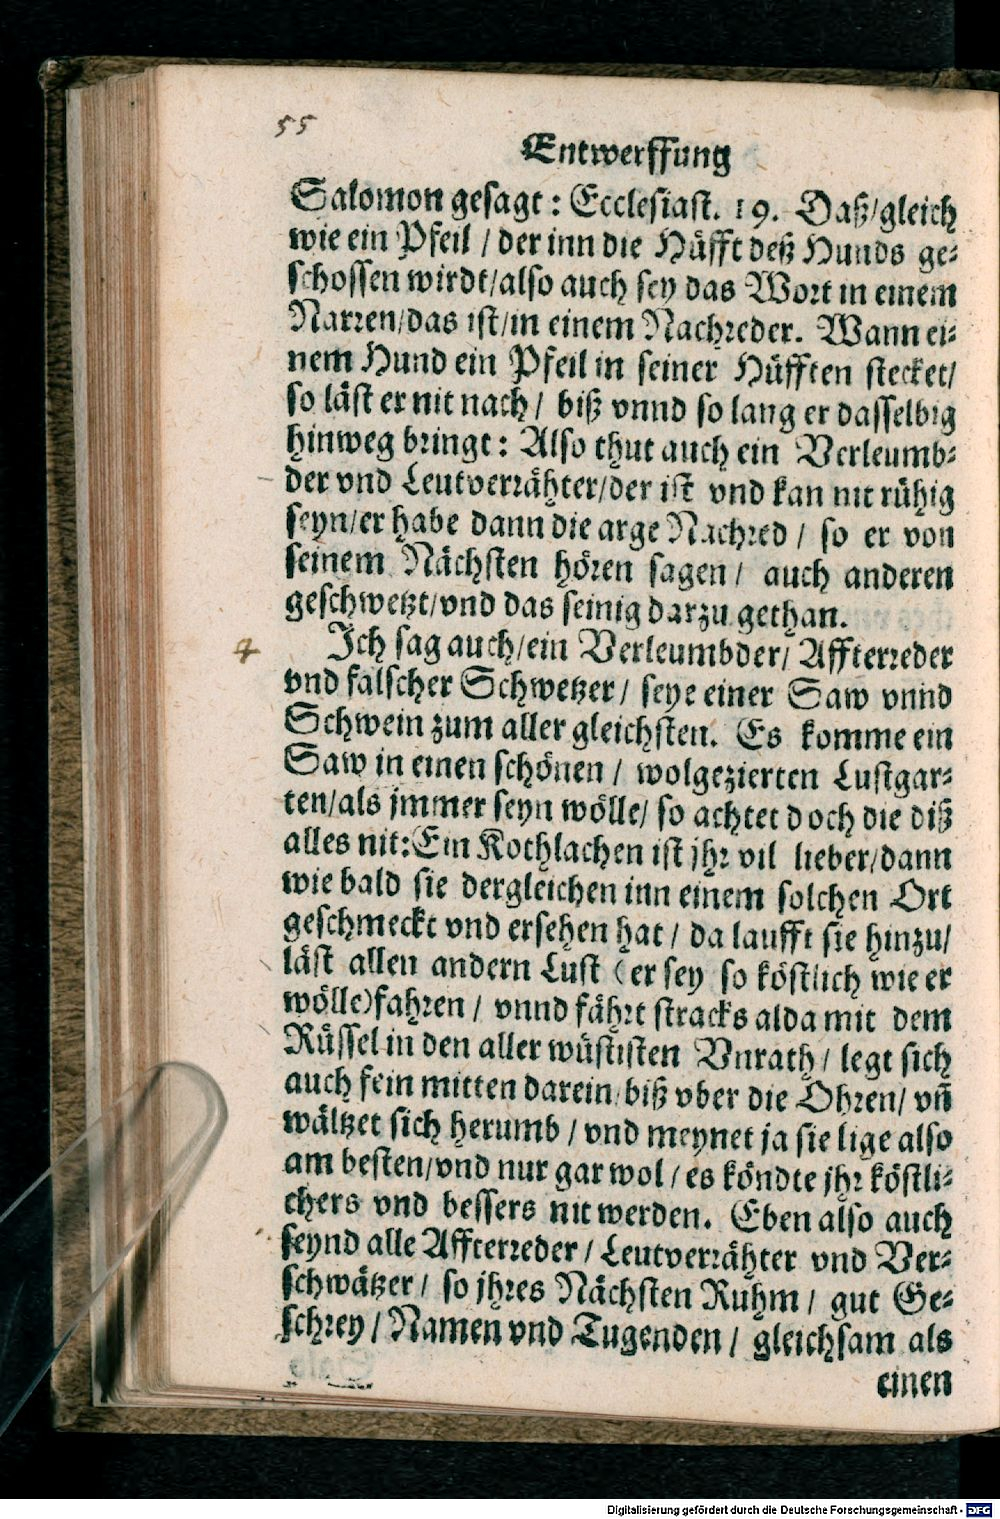 55
Entwerffung
Salomon gesagt: Ecclesiast. 19. Daß/gleich
wie ein Pfeil / der inn die Hüfft deß Hunds ge-
schossen wirdt/also auch sey das Wort in einem
Narren/das ist/in einem Nachreder. Wann ei-
nem Hund ein Pfeil in seiner Hüfften stecket/
so läst er nit nach / biß vnnd so lang er dasselbig
hinweg bringt: Also thut auch ein Verleumb-
der vnd Leutverrähter/der ist vnd kan nit rühig
seyn/er habe dann die arge Nachred / so er von
seinem Nächsten hören sagen / auch anderen
geschwetzt/vnd das seinig darzu gethan.
4
Ich sag auch/ein Verleumbder/ Affterreder
vnd falscher Schwetzer / seye einer Saw vnnd
Schwein zum aller gleichsten. Es komme ein
Saw in einen schönen / wolgezierten Lustgar-
ten/als jmmer seyn wölle/ so achtet doch die diß
alles nit: Ein Kothlachen ist jhr vil lieber/dann
wie bald sie dergleichen inn einem solchen Ort
geschmeckt vnd ersehen hat / da laufft sie hinzu/
läst allen andern Lust (er sey so köstlich wie er
wölle)fahren / vnnd fährt stracks alda mit dem
Rüssel in den aller wüstisten Vnrath / legt sich
auch fein mitten darein/biß vber die Ohren/ vñ
wältzet sich herumb / vnd meynet ja sie lige also
am besten/vnd nur gar wol / es köndte jhr köstli-
chers vnd bessers nit werden. Eben also auch
seynd alle Affterreder / Leutverrähter vnd Ver-
schwätzer / so jhres Nächsten Ruhm / gut Ge-
schrey / Namen vnd Tugenden / gleichsam als
einen
Digitalisierung gefördert durch die Deutsche Forschungsgemeinschaft - DFG